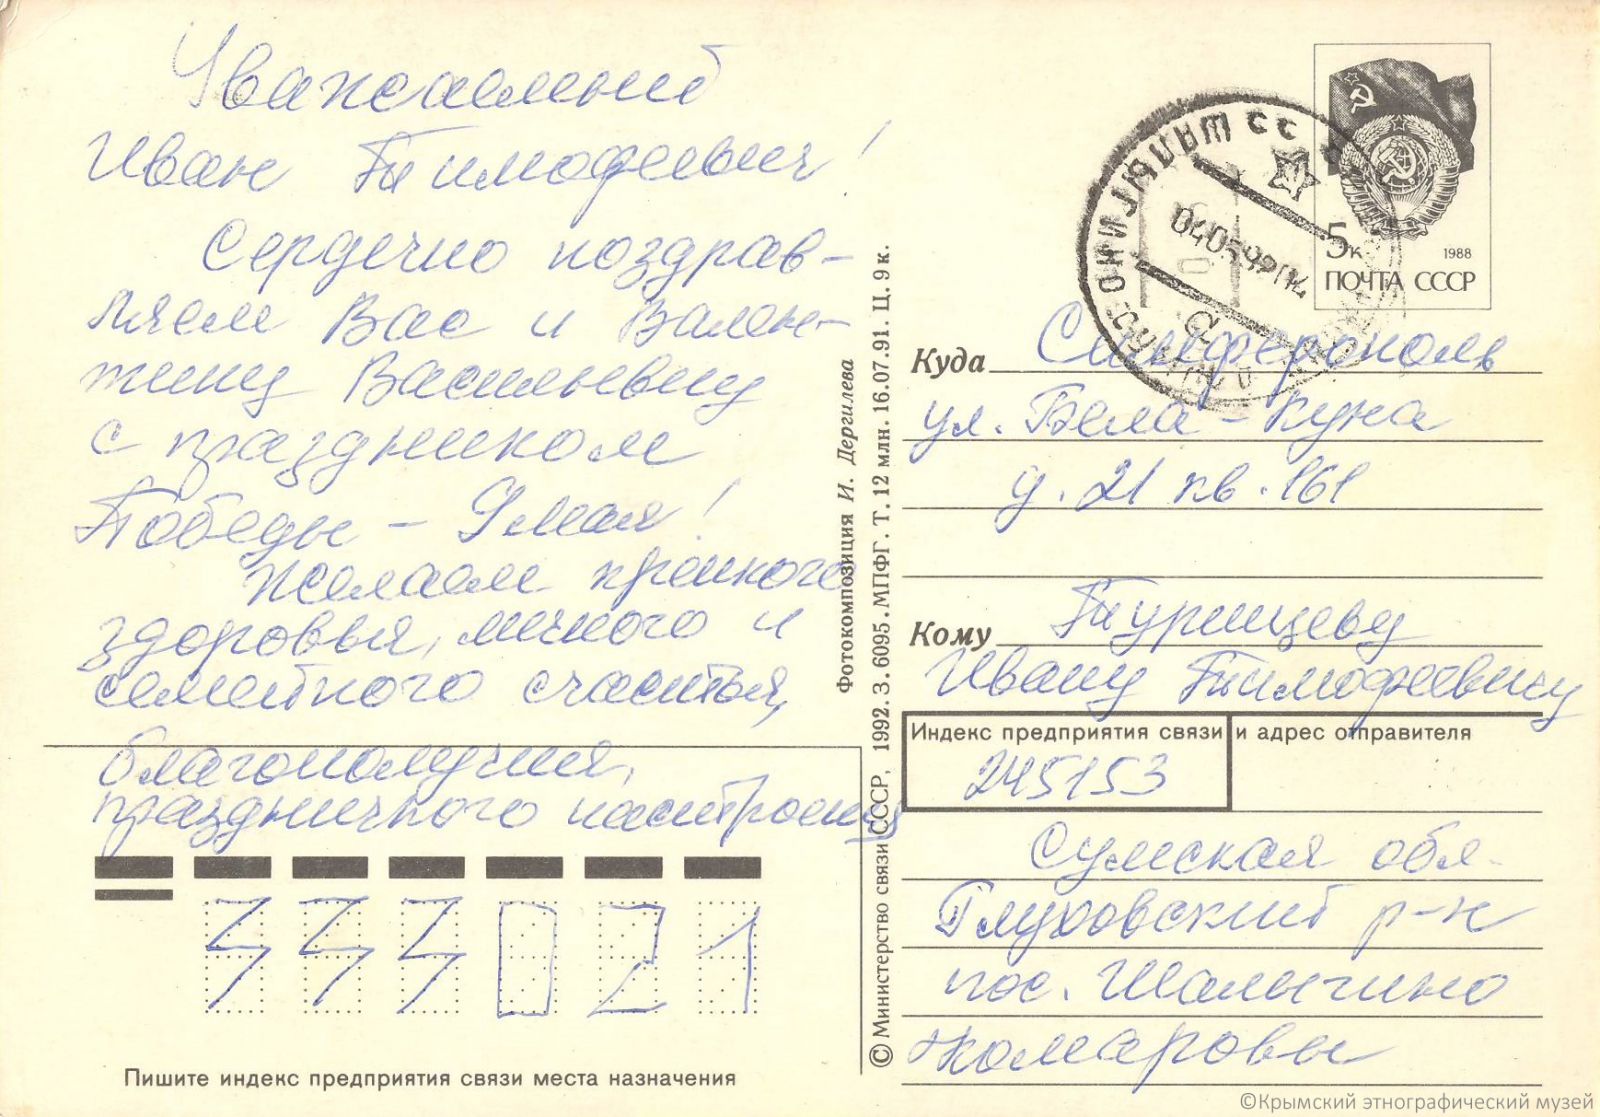 Уважаемый
Иван Тимофеевич!
Сердечно поздрав-
ляем Вас и Вален-
тину Васильевну
с праздником
Победы - 9 мая!
Желаем крепкого
здоровья, личного и
семейного счастья,
благополучия,
праздничного настроения
333021
Пишите индекс предприятия связи места назначения
Фотокомпозиция И. Дергилева
© Министерство связи СССР, 1992. З. 6095. МПФГ. Т. 12 млн. 16.07.91. Ц. 9 к.
5к 1988
ПОЧТА СССР
040592 14
Куда Симферополь
ул. Бела-Куна
д. 21 кв. 161
Кому Турищеву
Ивану Тимофеевичу
Индекс предприятия связи и адрес отправителя
245153
Сумская обл-
Глуховский р-н
пос. Шалыгино
Комаровы
©Крымский этнографический музей